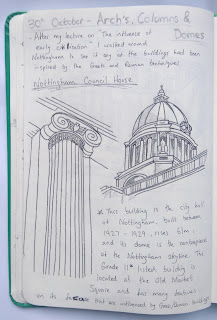 30th October - Arch's, Columns &
Domes
- After my lecture on "The influence of
early civilisation" I walked around
Nottingham to see is any of the buildings had been
inspired by the Greek and Roman techniques.
Nottingham Council House
* This building is the city hall
of Nottingham. built between
1927 - 1929, rises
and its dome is the centrepiece
of the Nottingham skyline. The
Grade II* listed building is
located at the Old Market
Square and has many features
on its that are influenced by Greek/Roman buildings